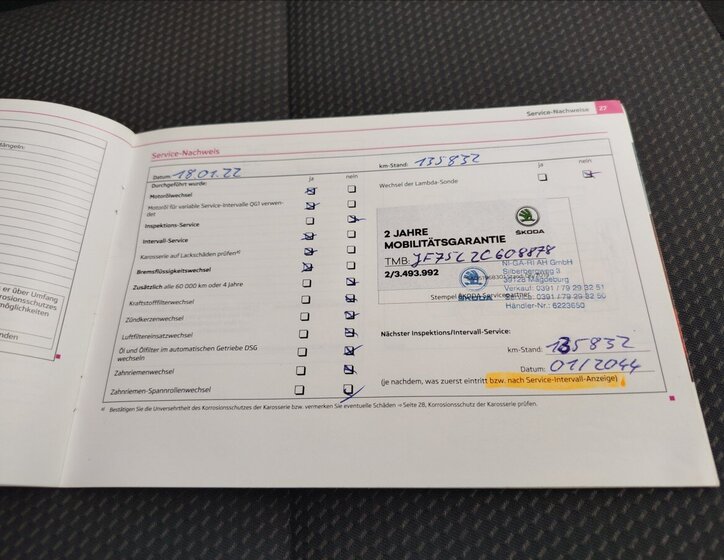 ängeln:
er über Umfang
rrosionsschutzes
möglichkeiten
nden
Service-Nachweise 27
Service-Nachweis
Datum: 18.01.22
km-Stand: 135832
ja nein
ja nein
Durchgeführt wurde:
Motorölwechsel
Wechsel der Lambda-Sonde
Motoröl für variable Service-Intervalle QG1 verwen-
det
Inspektions-Service
Intervall-Service
Karosserie auf Lackschäden prüfen a)
Bremsflüssigkeitswechsel
Zusätzlich alle 60 000 km oder 4 Jahre
Kraftstofffilterwechsel
Zündkerzenwechsel
Luftfiltereinsatzwechsel
Öl und Ölfilter im automatischen Getriebe DSG
wechseln
Zahnriemenwechsel
Zahnriemen-Spannrollenwechsel
2 JAHRE
MOBILITÄTSGARANTIE
ŠKODA
TMB:
2/3.493.992
NI-GA-RI AH GmbH
Silberbergweg 3
39128 Magdeburg
Verkauf: 0391 / 79 29 32 51
Service: 0391 / 79 29 32 50
Händler-Nr.: 6223650
Stempel ŠKODA Servicepartner
Nächster Inspektions/Intervall-Service:
km-Stand:
Datum: 01/2044
(je nachdem, was zuerst eintritt bzw. nach Service-Intervall-Anzeige)
a) Bestätigen Sie die Unversehrtheit des Korrosionsschutzes der Karosserie bzw. vermerken Sie eventuelle Schäden ⇒ Seite 28, Korrosionsschutz der Karosserie prüfen.